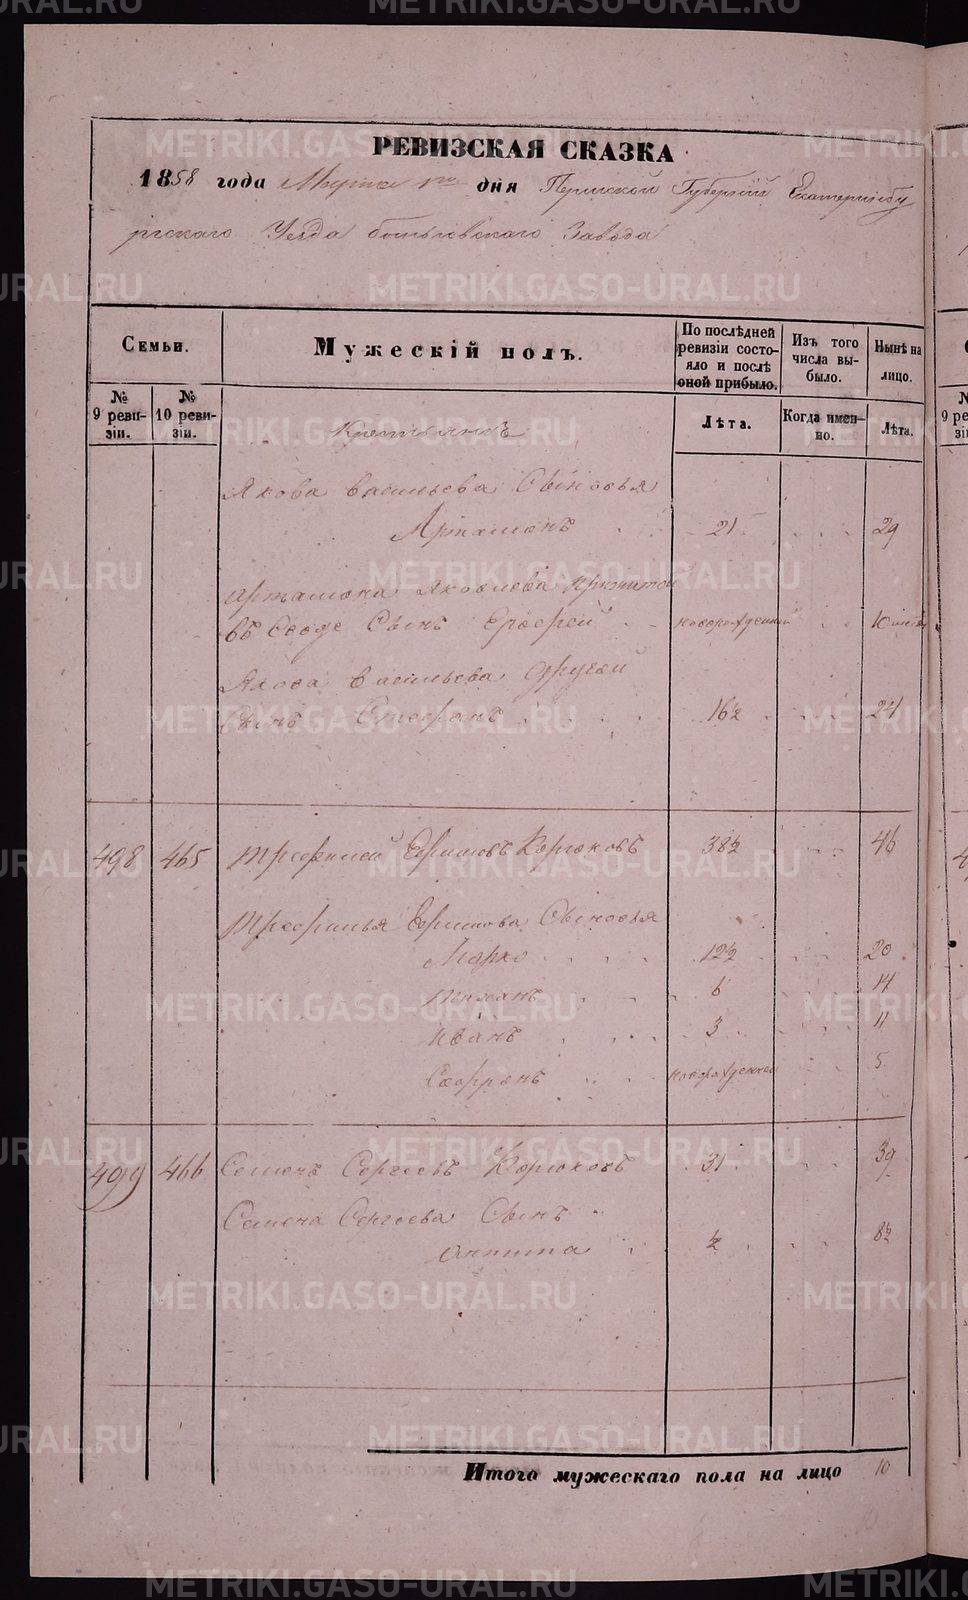 РЕВИЗСКАЯ СКАЗКА
1858 года Марта дня Пермской Губерніи Екатеринбу
ргскаго Уезда Завода
Семьи.
Мужескій полъ.
По послѣдней ревизіи состояло и послѣ оной прибыло.
Изъ того числа выбыло.
Нынѣ на лицо.
№ 9 ревизіи.
№ 10 ревизіи.
Лѣта.
Когда именно.
Лѣта.
Крестьянъ
Якова Васильева Сыновья
Артамонъ 21 29
Артамона Яковлева
Сынъ Ерофей новорожденный
Якова Васильева другой
Сынъ Стефанъ 16½ 24
498 465 Трефилей Ефимовъ Корюковъ 38½ 46
Трефилья Ефимова Сыновья
Марко 12½ 20
6 14
Иванъ 3 11
Сафронъ новорожденной 5
499 466 Семенъ Сергеевъ Корюковъ 31 39
Семена Сергеева Сынъ
Анпита ½ 8½
Итого мужескаго пола на лицо 10
METRIKI.GASO-URAL.RU